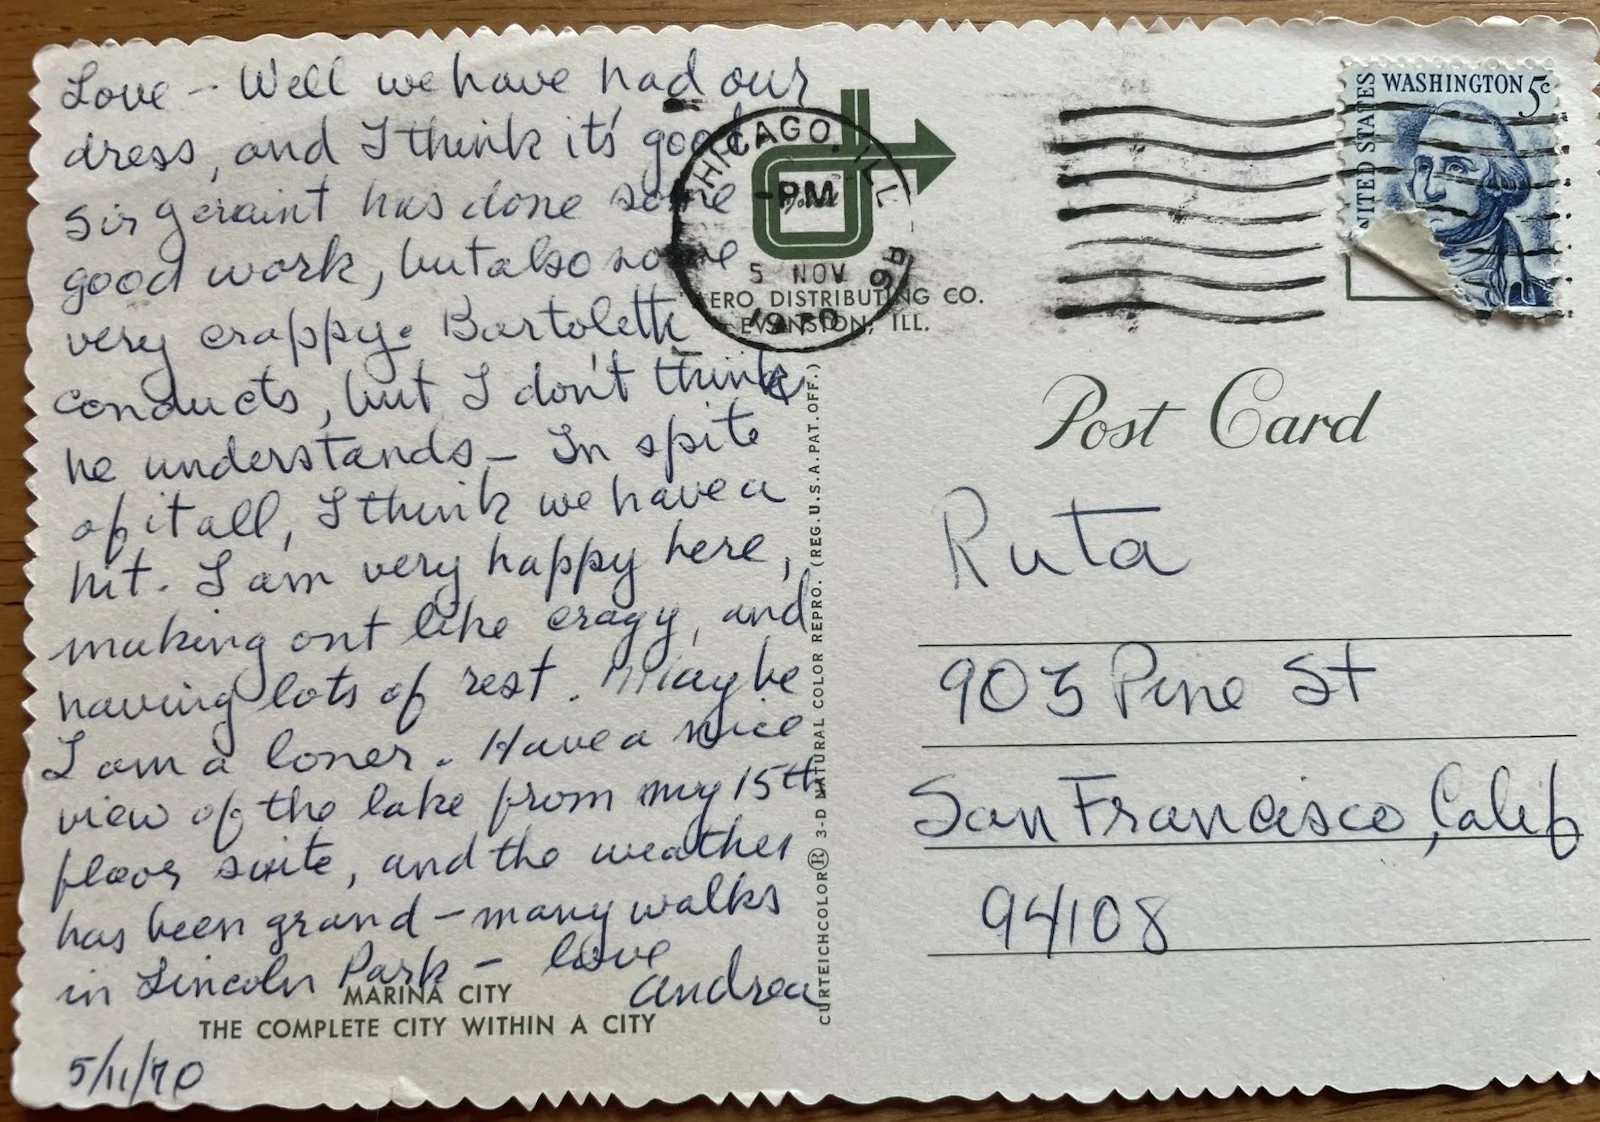 Love - Well we have had our
dress, and I think it's good
Sir Geraint has done some
good work, but also some
very crappy. Bartoletti
conducts, but I don't think
he understands - In spite
of it all, I think we have a
hit. I am very happy here,
making out like crazy, and
having lots of rest. Maybe
I am a loner. Have a nice
view of the lake from my 15th
floor suite, and the weather
has been grand - many walks
in Lincoln Park - love
Andrea
MARINA CITY
THE COMPLETE CITY WITHIN A CITY
5/11/70
CHICAGO, ILL
PM
5 NOV
1970
DISTRIBUTING CO.
EVANSTON, ILL.
CURTEICHCOLOR® 3-D NATURAL COLOR REPRO. (REG. U.S.A. PAT. OFF.)
UNITED STATES
WASHINGTON 5c
Post Card
Ruta
903 Pine St
San Francisco, Calif
94108